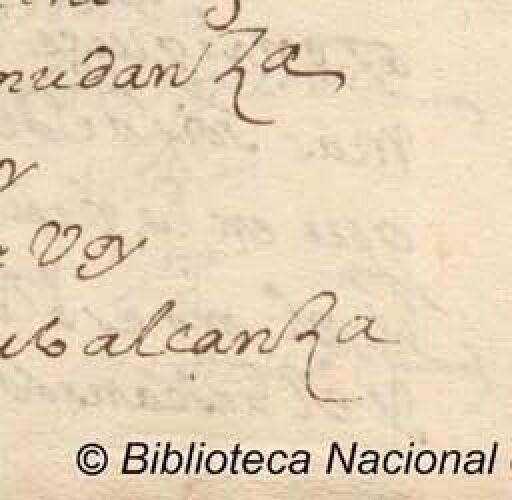 mudanza
y
voy
alcanza
© Biblioteca Nacional